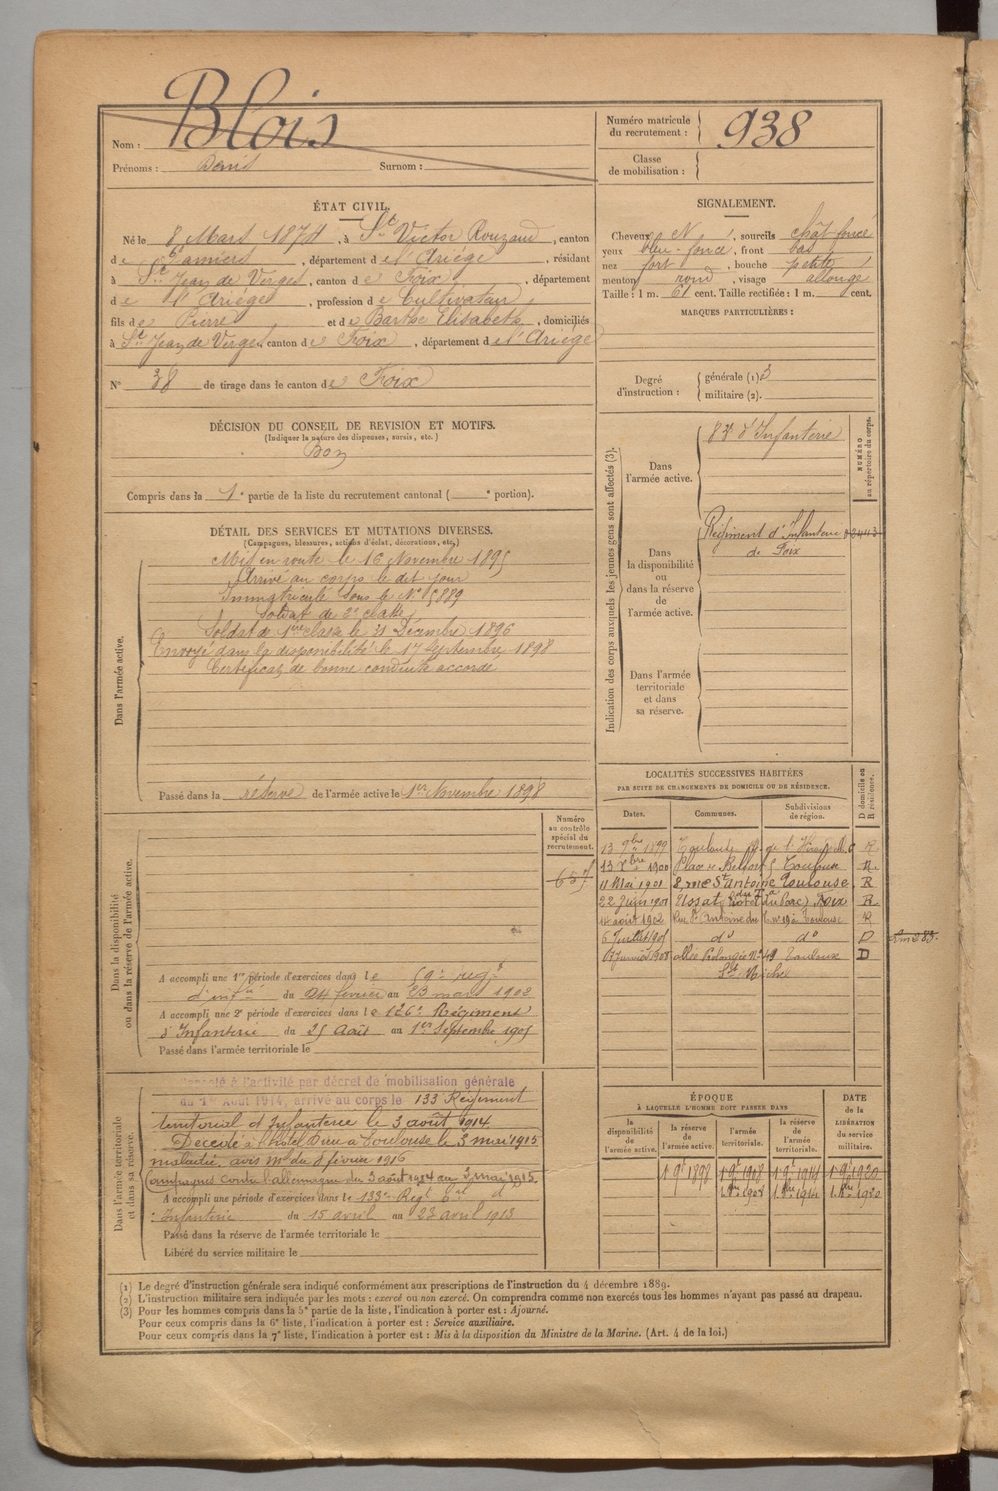 Blois
Nom :
Prénoms : Denis Surnom :
Numéro matricule du recrutement : 938
Classe de mobilisation :
ÉTAT CIVIL.
Né le 8 Mars 1874, à St Victor Rouzaud, canton
de Pamiers, département de l'Ariège, résidant
à St Jean de Verges, canton de Foix, département
de l'Ariège, profession de Cultivateur
fils de Pierre et de Barthe Elisabeth, domiciliés
à St Jean de Verges, canton de Foix, département de l'Ariège
N° 38 de tirage dans le canton de Foix
DÉCISION DU CONSEIL DE REVISION ET MOTIFS.
(Indiquer la nature des dispenses, sursis, etc.)
Bon
Compris dans la 1e partie de la liste du recrutement cantonal ( e portion).
SIGNALEMENT.
Cheveux N, sourcils chat foncé
yeux bleu-foncé, front bas
nez fort, bouche petite
menton rond, visage allongé
Taille : 1 m. 61 cent. Taille rectifiée : 1 m. cent.
MARQUES PARTICULIÈRES :
Degré d'instruction : générale (1) 3
militaire (2).
DÉTAIL DES SERVICES ET MUTATIONS DIVERSES.
(Campagnes, blessures, actions d'éclat, décorations, etc.)
Dans l'armée active.
Mis en route le 16 Novembre 1895
Arrivé au corps le dit jour
Immatriculé sous le N° 5889
Soldat de 2e classe
Soldat de 1ère classe le 31 Décembre 1896
Envoyé dans la disponibilité le 17 Septembre 1898
Certificat de bonne conduite accordé
Passé dans la réserve de l'armée active le 1er Novembre 1898
Indication des corps auxquels les jeunes gens sont affectés (3).
NUMÉRO au répertoire du corps.
Dans l'armée active.
83e d'Infanterie
Dans la disponibilité ou dans la réserve de l'armée active.
Régiment d'Infanterie
de Foix
Dans l'armée territoriale et dans sa réserve.
Dans la disponibilité ou dans la réserve de l'armée active.
Numéro au contrôle spécial du recrutement.
A accompli une 1re période d'exercices dans le regt
d'infie du 24 février au 23 mars 1902
A accompli une 2e période d'exercices dans le 126e Régiment
d'Infanterie du 25 Août au 1er Septembre 1905
Passé dans l'armée territoriale le
LOCALITÉS SUCCESSIVES HABITÉES
PAR SUITE DE CHANGEMENTS DE DOMICILE OU DE RÉSIDENCE.
Dates. Communes. Subdivisions de région. D domicile ou R résidence.
13 9bre 1899 Toulouse R
1900 Toulouse R
11 Mai 1901 8, rue St Antoine Toulouse. R
22 Juin 1901 Ussat, (hotel du Parc) Foix R
14 août 1902 Rue St Antoine du T n° 19 Toulouse R
6 Juillet 1905 d° d° D
17 Janvier 1908 allée N° 49 Toulouse D
St Michel
Dans l'armée territoriale et dans sa réserve.
Rappelé à l'activité par décret de mobilisation générale
du 1er Août 1914, arrivé au corps le 133 Régiment
territorial d'Infanterie le 3 août 1914.
Décédé à l'hôtel Dieu à Toulouse le 3 mai 1915
maladie. avis mel du 8 février 1916
Campagnes contre l'allemagne du 3 août 1914 au 3 mai 1915.
A accompli une période d'exercices dans le 133e Regt tal d'
Infanterie du 15 avril au 23 avril 1913
Passé dans la réserve de l'armée territoriale le
Libéré du service militaire le
ÉPOQUE
À LAQUELLE L'HOMME DOIT PASSER DANS
la disponibilité de l'armée active. la réserve de l'armée active. l'armée territoriale. la réserve de l'armée territoriale. DATE de la LIBÉRATION du service militaire.
1 9e 1898 1 9e 1908 1 9e 1914 1 9e 1920
1 9bre 1908 1 9bre 1914 1 9bre 1920
(1) Le degré d'instruction générale sera indiqué conformément aux prescriptions de l'instruction du 4 décembre 1889.
(2) L'instruction militaire sera indiquée par les mots : exercé ou non exercé. On comprendra comme non exercés tous les hommes n'ayant pas passé au drapeau.
(3) Pour les hommes compris dans la 5e partie de la liste, l'indication à porter est : Ajourné.
Pour ceux compris dans la 6e liste, l'indication à porter est : Service auxiliaire.
Pour ceux compris dans la 7e liste, l'indication à porter est : Mis à la disposition du Ministre de la Marine. (Art. 4 de la loi.)